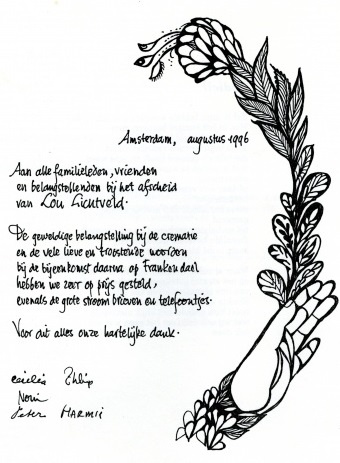 Amsterdam, augustus 1996
Aan alle familieleden, vrienden
en belangstellenden bij het afscheid
van Lou Lichtveld.
De geweldige belangstelling bij de crematie
en de vele lieve en troostende woorden
bij de bijeenkomst daarna op Frankendael
hebben we zeer op prijs gesteld,
evenals de grote stroom brieven en telefoontjes.
Voor dit alles onze hartelijke dank.
Cecilia
Noni
Peter HARMIJ